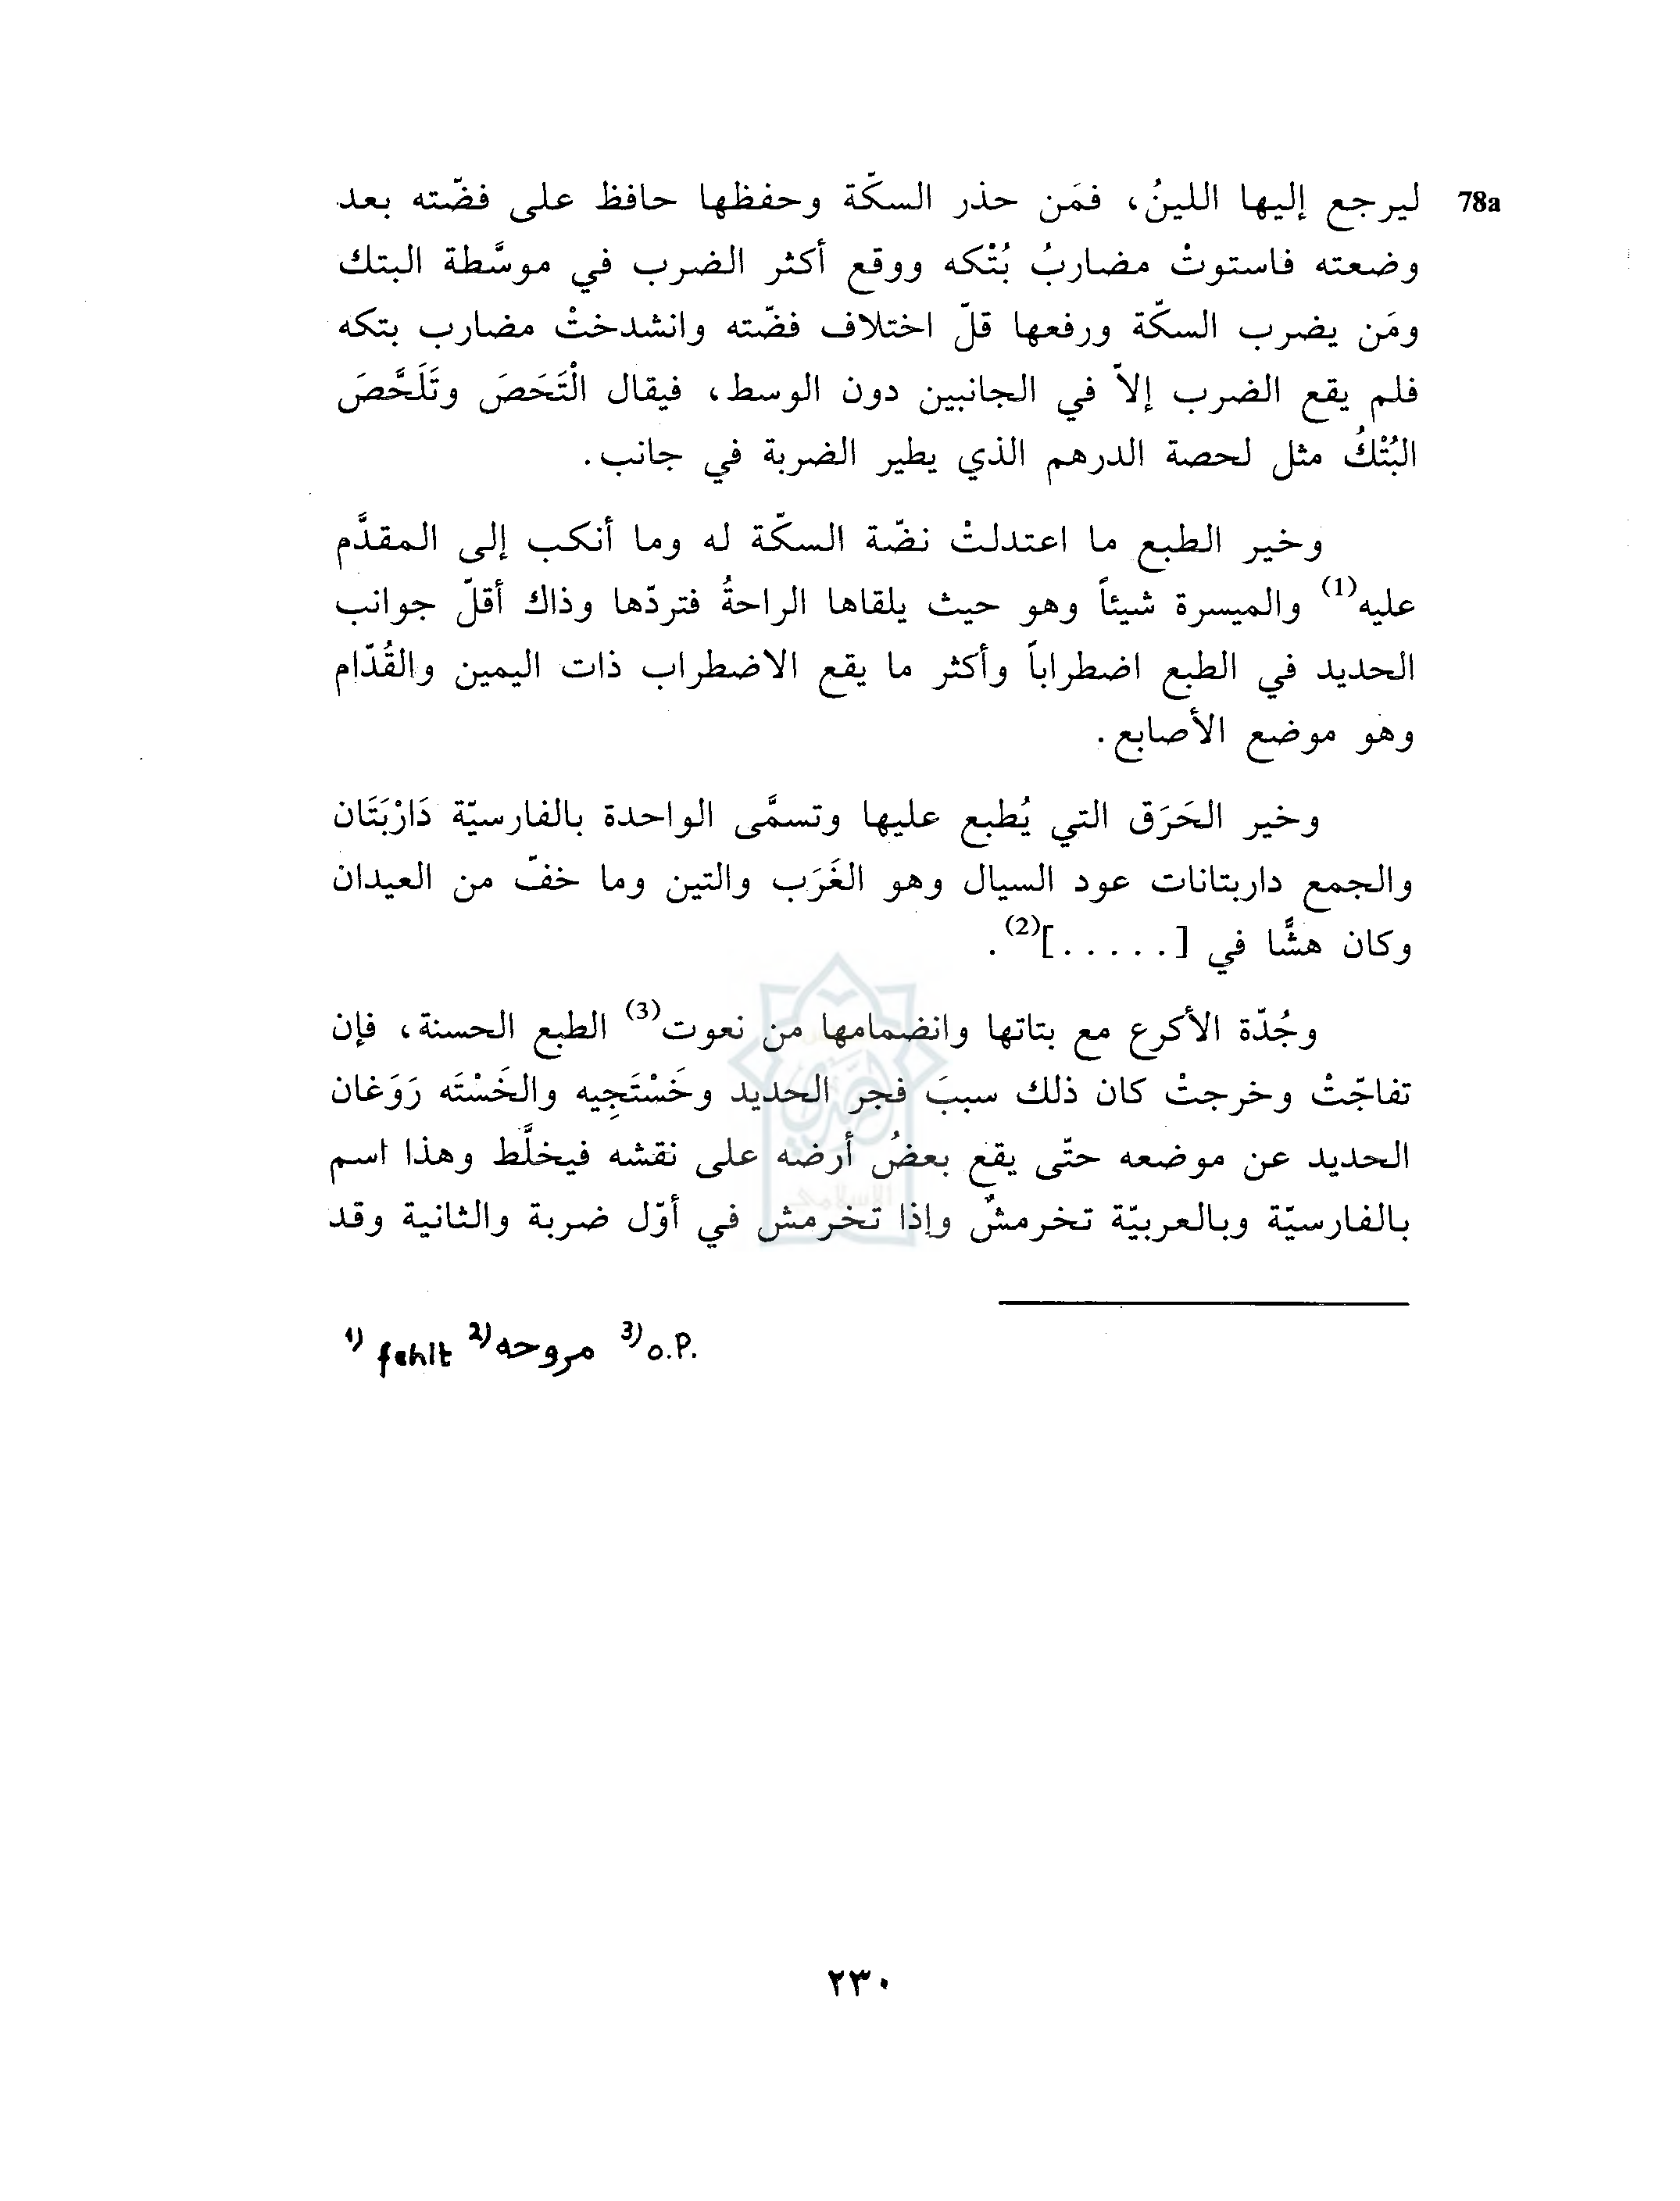 78a ليرجع إليها اللينُ، فمَن حذر السكّة وحفظها حافظ على فضّته بعد
وضعته فاستوتْ مضاربُ بُتْكه ووقع أكثر الضرب في موسَّطة البتك
ومَن يضرب السكّة ورفعها قلّ اختلاف فضّته وانشدختْ مضارب بتكه
فلم يقع الضرب إلاّ في الجانبين دون الوسط، فيقال الْتَحَصَ وتَلَحَّصَ
البُتْكُ مثل لحصة الدرهم الذي يطير الضربة في جانب.
وخير الطبع ما اعتدلتْ نضّة السكّة له وما أنكب إلى المقدَّم
عليه(1) والميسرة شيئاً وهو حيث يلقاها الراحةُ فتردّها وذاك أقلّ جوانب
الحديد في الطبع اضطراباً وأكثر ما يقع الاضطراب ذات اليمين والقُدّام
وهو موضع الأصابع.
وخير الحَرَق التي يُطبع عليها وتسمَّى الواحدة بالفارسيّة دَارْبَتَان
والجمع داربتانات عود السيال وهو الغَرَب والتين وما خفّ من العيدان
وكان هشًّا في [.....](2).
وجُدّة الأكرع مع بتاتها وانضمامها من نعوت(3) الطبع الحسنة، فإن
تفاجّتْ وخرجتْ كان ذلك سببَ فجر الحديد وخَسْتَجِيه والخَسْتَه رَوَغان
الحديد عن موضعه حتّى يقع بعضُ أرضه على نقشه فيخلَّط وهذا اسم
بالفارسيّة وبالعربيّة تخرمشٌ وإذا تخرمش في أوّل ضربة والثانية وقد
1) fehlt 2) مروحه 3) o.P.
٢٣٠